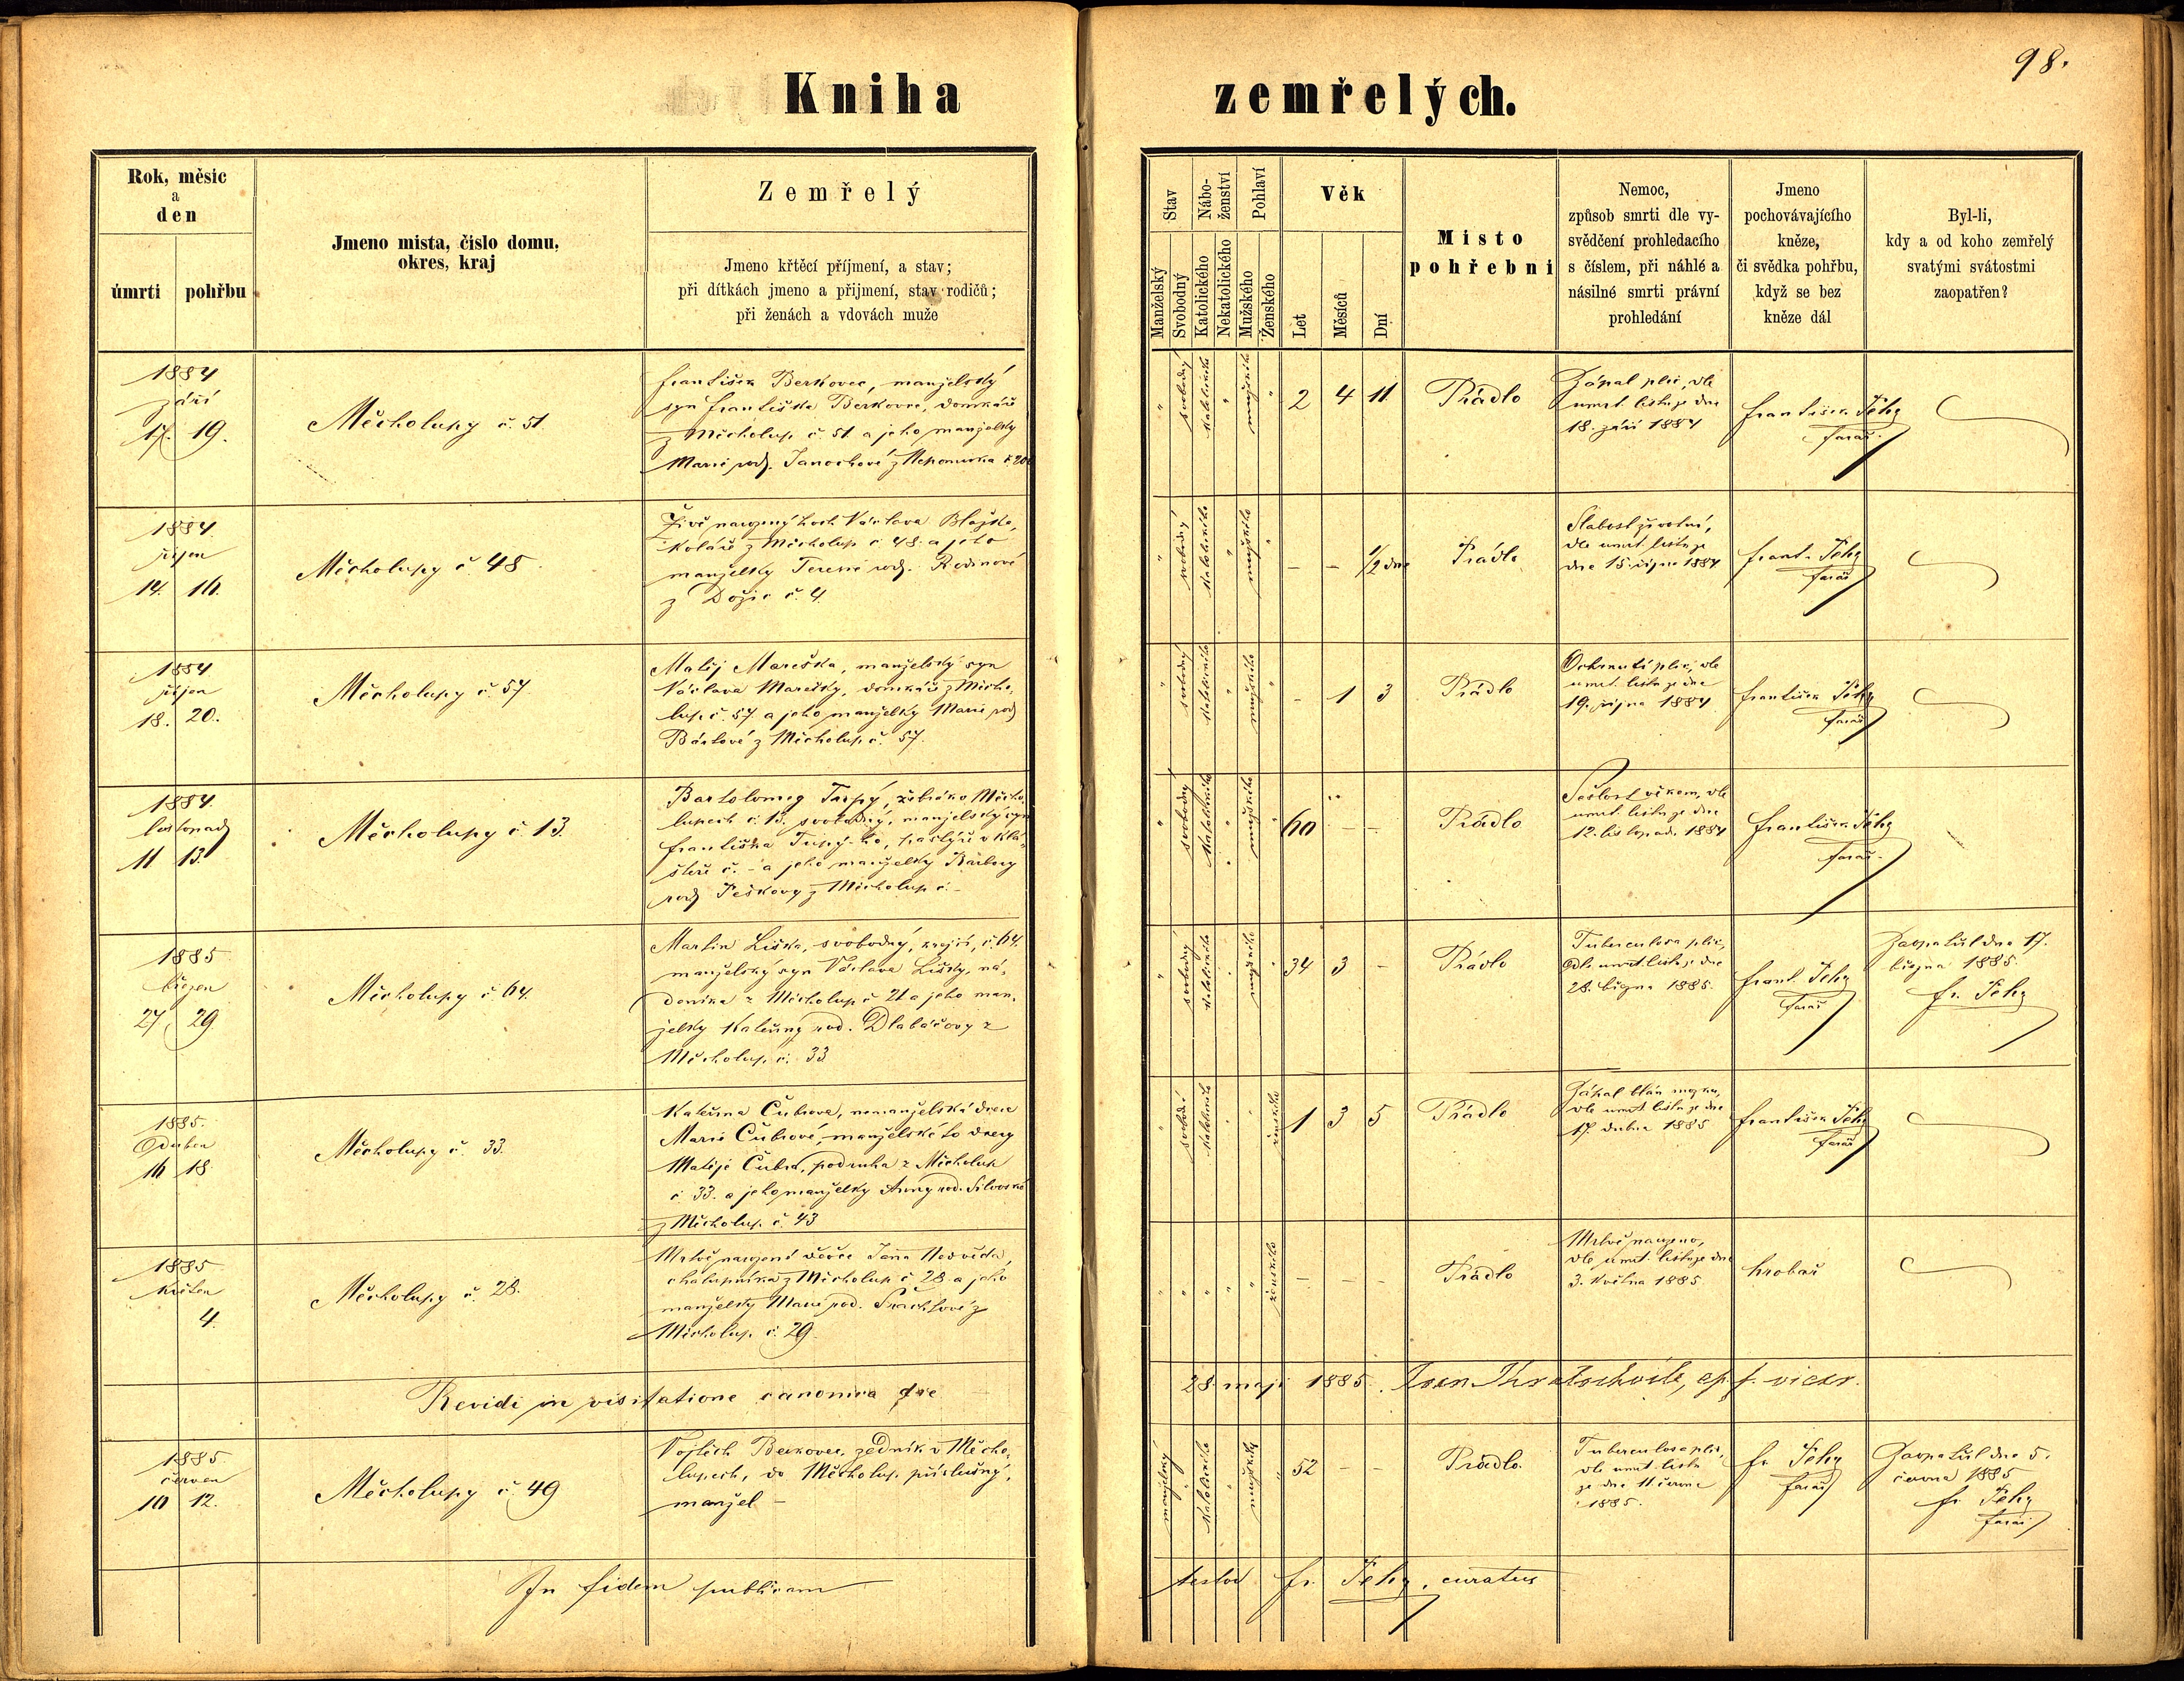 98.
Kniha zemřelých.
Rok, měsíc
a
den
úmrtí
pohřbu
Jmeno místa, čislo domu,
okres, kraj
Zemřelý
Jmeno křtěcí příjmení, a stav;
při dítkách jmeno a přijmení, stav rodičů;
při ženách a vdovách muže
Stav
Nábo-
ženství
Pohlaví
Manželský
Svobodný
Katolického
Nekatolického
Mužského
Ženského
Věk
Let
Měsíců
Dní
Místo
pohřební
Nemoc,
způsob smrti dle vy-
svědčení prohledacího
s číslem, při náhlé a
násilné smrti právní
prohledání
Jmeno
pochovávajícího
kněze,
či svědka pohřbu,
když se bez
kněze dál
Byl-li,
kdy a od koho zemřelý
svatými svátostmi
zaopatřen?
1884
září
17. 19.
Měcholupy č. 51.
František Berkovec, manželský
syn Františka Berkovce, domkáře
z Měcholup č. 51 a jeho manželky
Marie rod. Janochové z Nepomuka č. 20
" svobodný katolického " mužského "
2 4 11
Prádlo
Zápal plic, dle
úmrt. listu ze dne
18. září 1884
František
farář.
1884.
říjen
14. 16.
Měcholupy č. 48
Živě narozený hoch Václava
koláře z Měcholup č. 48. a jeho
manželky Terezie rodz.
z Dožic č. 4.
" svobodný katolického " mužského "
— — 1/2 dne
Prádlo
Slabost životní,
dle úmrt. listu ze
dne 15. října 1884
Frant.
farář
1884.
říjen
18. 20.
Měcholupy č. 57
Matěj Mareška, manželský syn
Václava Marešky, domkáře z Měcho-
lup č. 57. a jeho manželky Marie rod.
Bártové z Měcholup č. 57.
" svobodný katolického " mužského "
- 1 3
Prádlo
Ochrnutí plic, dle
úmrt. listu ze dne
19. října 1884
František
farář
1884.
listopad
11 13.
Měcholupy č. 13.
Bartolomej Tupý, žebrák v Měcho-
lupech č. 13. svobodný, manželský syn
Františka Tupý-ho, pastýře v Klá-
šteře č. - a jeho manželky Barbory
rodz. Peškovy z Měcholup č. -
" svobodný katolického " mužského "
60 - -
Prádlo
Sešlost věkem, dle
úmrt. listu ze dne
12. listopadu 1884
František
farář.
1885
březen
27 29
Měcholupy č. 64.
Martin Liška, svobodný, krejčí, č. 64.
manželský syn Václava Lišky, ná-
deníka z Měcholup č. 21 a jeho man-
želky Kateřiny rod. Dlabáčovy z
Měcholup. č. 33
" svobodný katolického " mužského "
34 3 -
Prádlo
Tuberculosa plic,
dle úmrt. listu ze dne
28. března 1885.
Frant.
farář
Zaopatřil dne 17.
března 1885.
Fr.
1885.
Duben
16 18.
Měcholupy č. 33.
Kateřina Čubrova, nemanželská dcera
Marie Čubrové, manželské to dcery
Matěje Čubra, podruha z Měcholup
č. 33. a jeho manželky Anny rod.
z Měcholup. č. 43
" katolického " " ženského
1 3 5
Prádlo
Zápal blán mozku,
dle úmrt. listu ze dne
17. dubna 1885
František
farář
1885
Květen
4.
Měcholupy č. 28.
Mrtvě narozené děvče Jana Nedvěda,
chalupníka z Měcholup č. 28 a jeho
manželky Marie rod.
Měcholup. č. 29.
" " " " " ženského
— — —
Prádlo
Mrtvě narozeno,
dle úmrt. listu ze dne
3. května 1885
hrobař
Revidi in visitatione canonica die
28 maji 1885. vicar.
1885.
červen
10 12.
Měcholupy č. 49
Vojtěch Berkovec, zedník v Měcho-
lupech, do Měcholup příslušný,
manžel —
manželský " katolického " mužského "
52 - -
Prádlo.
Tuberculosa plic,
dle úmrt. listu
ze dne 11. června
1885.
Fr.
farář
Zaopatřil dne 5.
června 1885
Fr.
farář
In fidem publicam
testor Fr. curatus